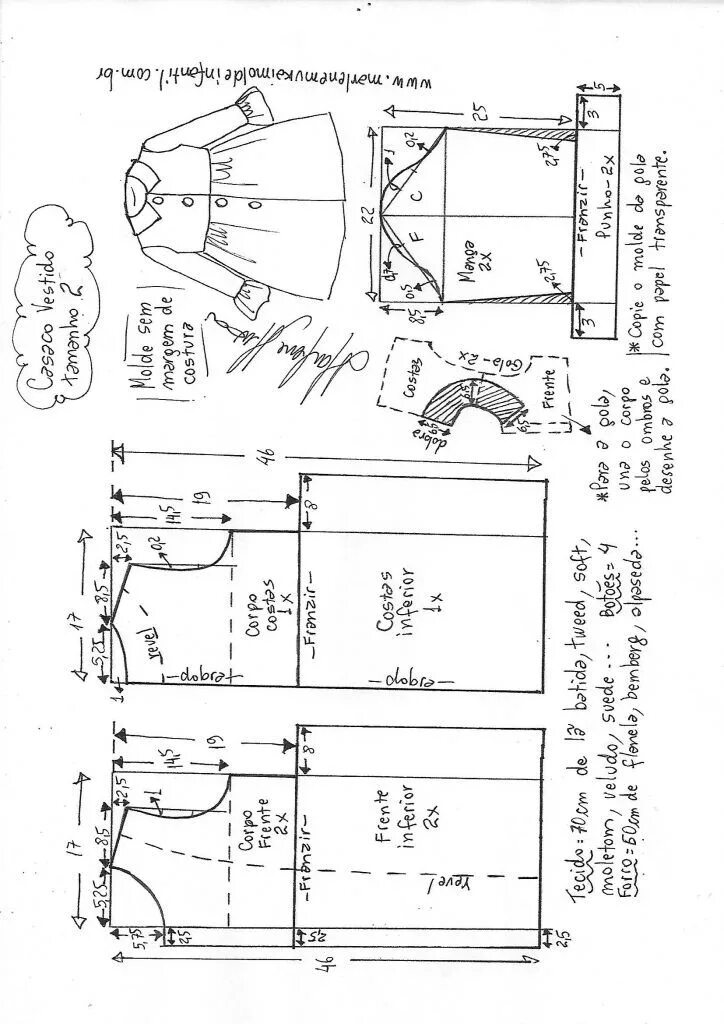 www.marlenemukaimoldeinfantil.com.br
Casaco Vestido
tamanho 2
Molde sem
margem de
costura
22
25
8,5
0,7
0,5
1
0,2
F
C
Manga
2x
2,75
2,75
-Franzir-
Punho-2x
3
3
5
*Copie o molde da gola
com papel transparente.
Costas
Gola-2x
Frente
dobra
6,5
6,5
6,5
*Para a gola,
una o corpo
pelos ombros e
desenhe a gola.
17
5,25
8,5
2,5
1
0,2
14,5
19
46
revel
Corpo
costas
1x
-dobra-
-Franzir-
8
Costas
inferior
1x
-dobra-
17
5,25
8,5
2,5
1
14,5
19
5,75
2,5
2,5
2,5
46
Corpo
Frente
2x
-Franzir-
8
Frente
inferior
2x
revel
Tecido=70cm de lã batida, tweed, soft,
moletom, veludo, suede... Botões=4
Forro=60cm de flanela, bemberg, alpaseda...